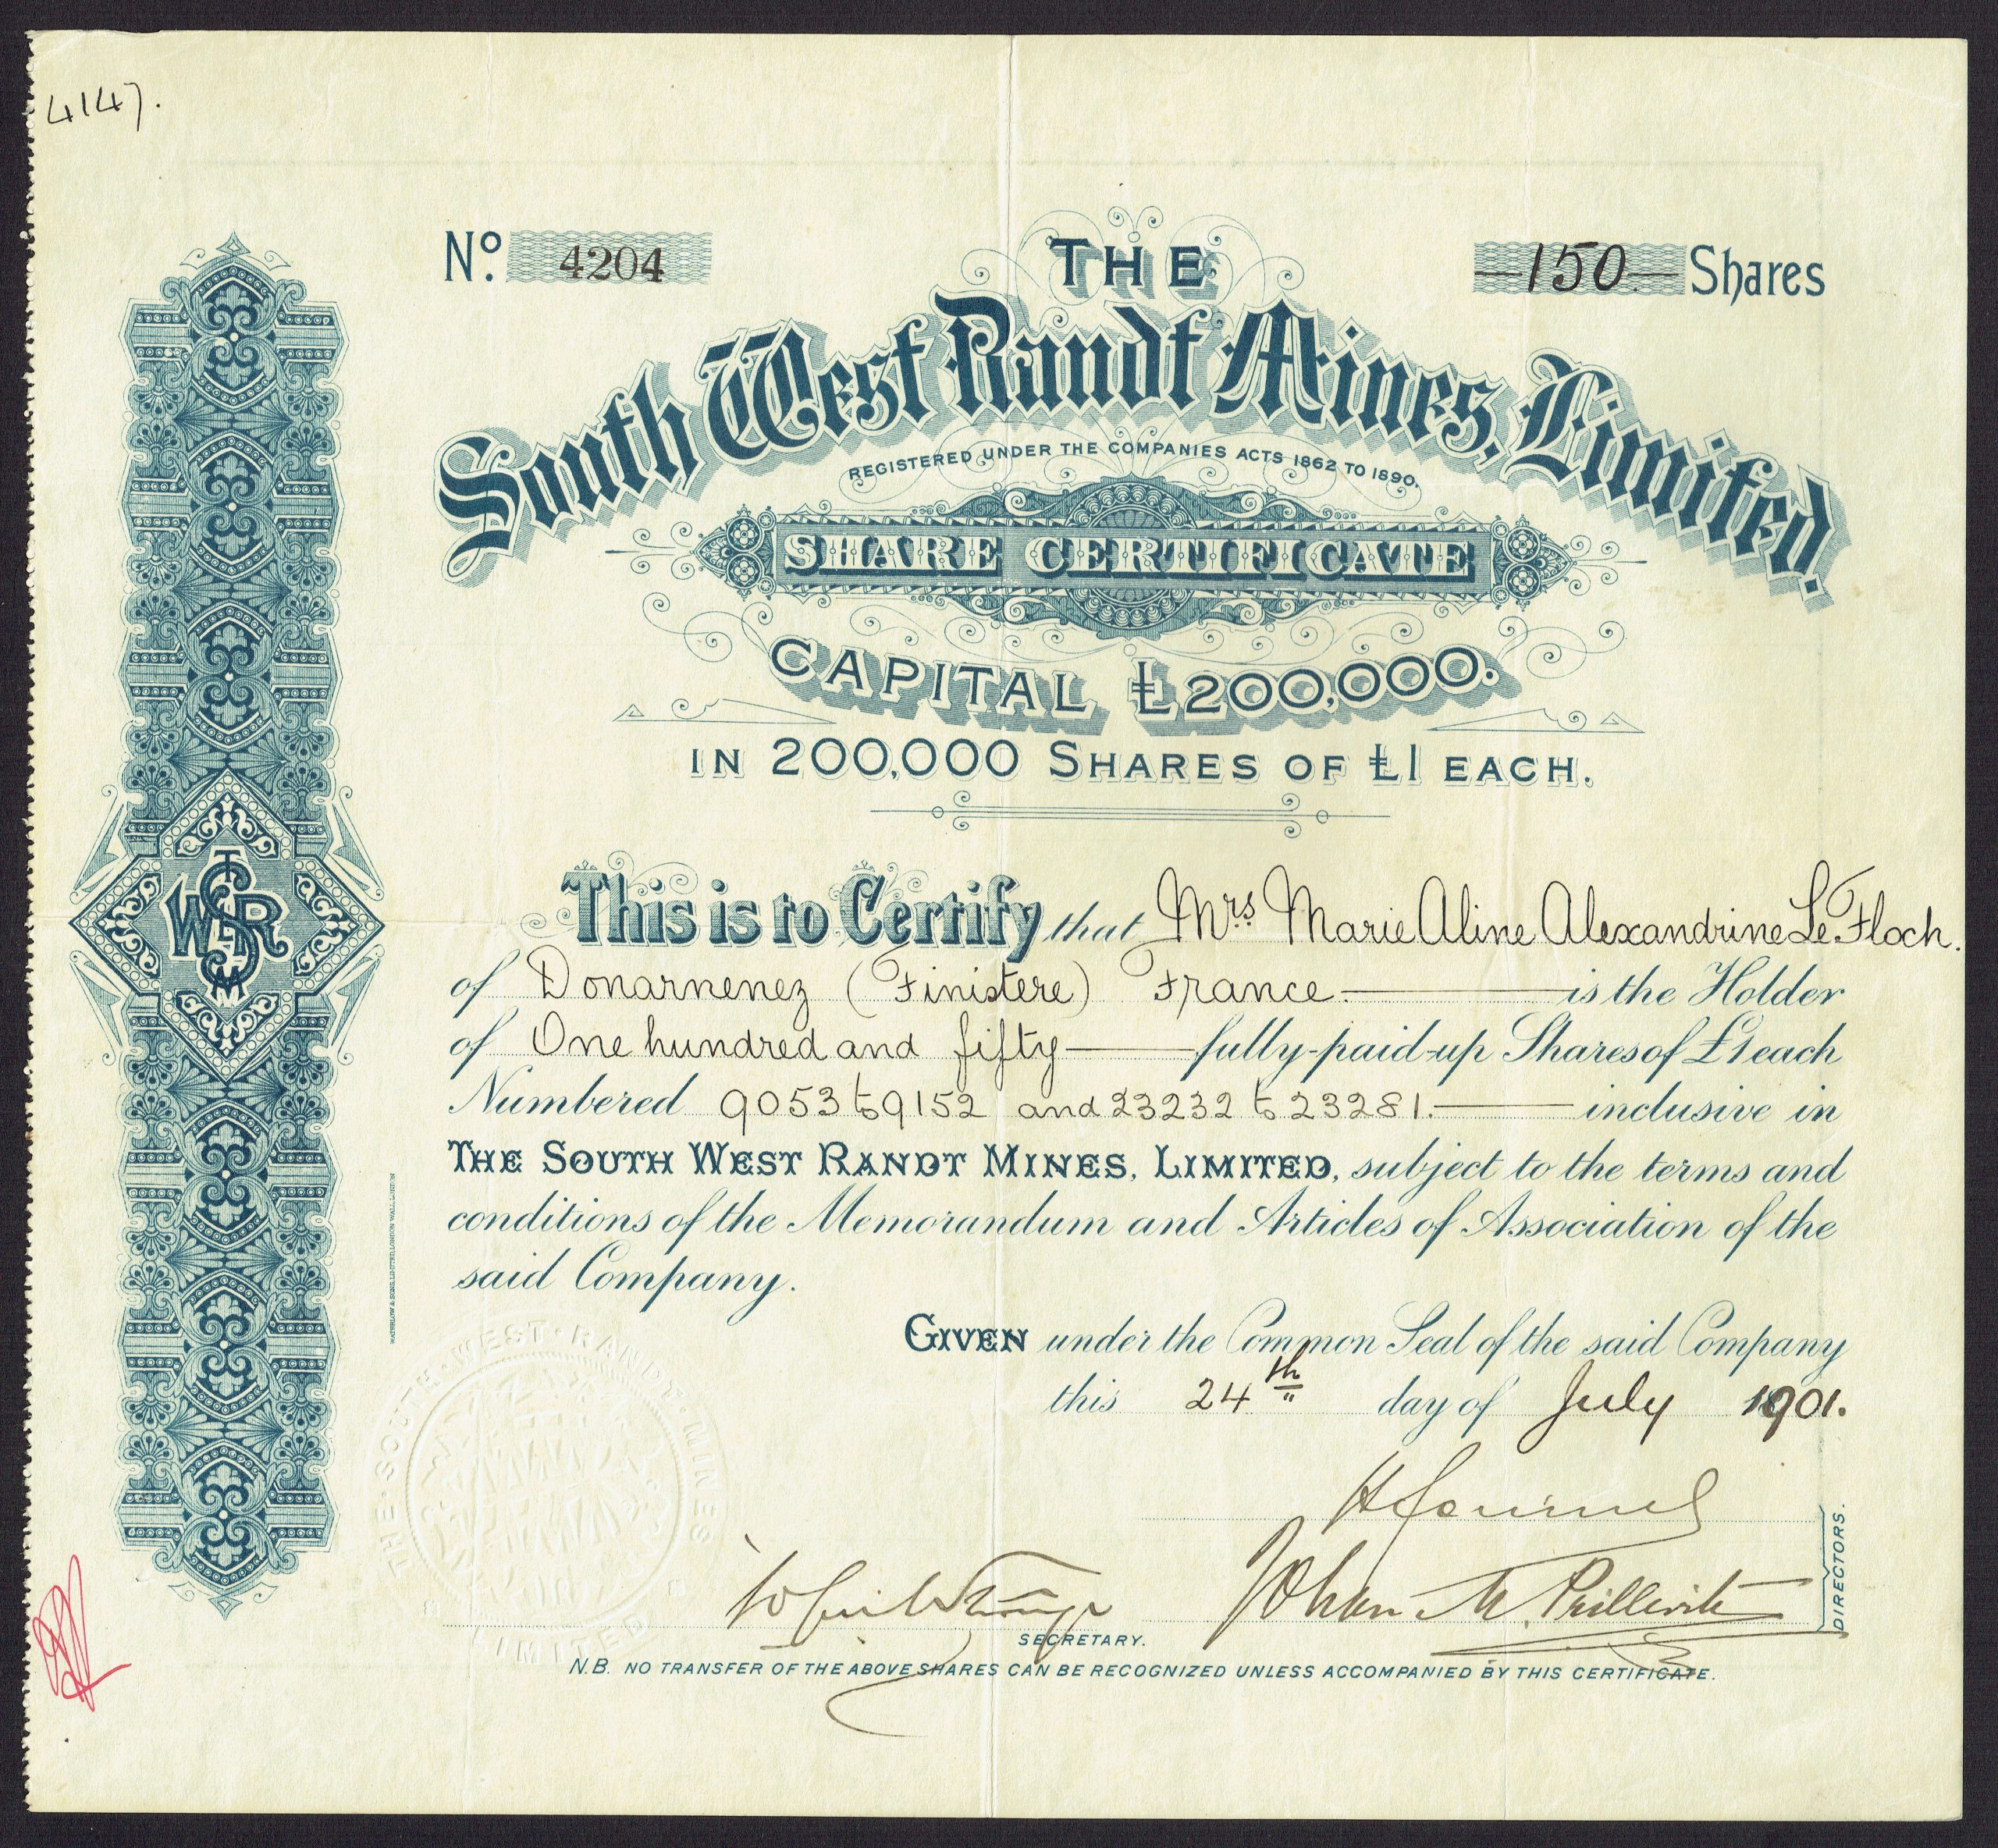 4147.
No. 4204
—150— Shares
THE
South West Randt Mines, Limited.
REGISTERED UNDER THE COMPANIES ACTS 1862 TO 1890.
SHARE CERTIFICATE
CAPITAL £200,000.
IN 200,000 SHARES OF £1 EACH.
This is to Certify that Mrs Marie Aline Alexandrine Le Floch.
of Donarnenez (Finistere) France.— is the Holder
of One hundred and fifty — fully-paid-up Shares of £1 each
Numbered 9053 to 9152 and 23232 to 23281.— inclusive in
THE SOUTH WEST RANDT MINES, LIMITED, subject to the terms and
conditions of the Memorandum and Articles of Association of the
said Company.
GIVEN under the Common Seal of the said Company
this 24th day of July 1901.
THE·SOUTH·WEST·RANDT·MINES
LIMITED
Johan
DIRECTORS.
SECRETARY.
N.B. NO TRANSFER OF THE ABOVE SHARES CAN BE RECOGNIZED UNLESS ACCOMPANIED BY THIS CERTIFICATE.
WATERLOW & SONS, LIMITED, LONDON WALL, LONDON